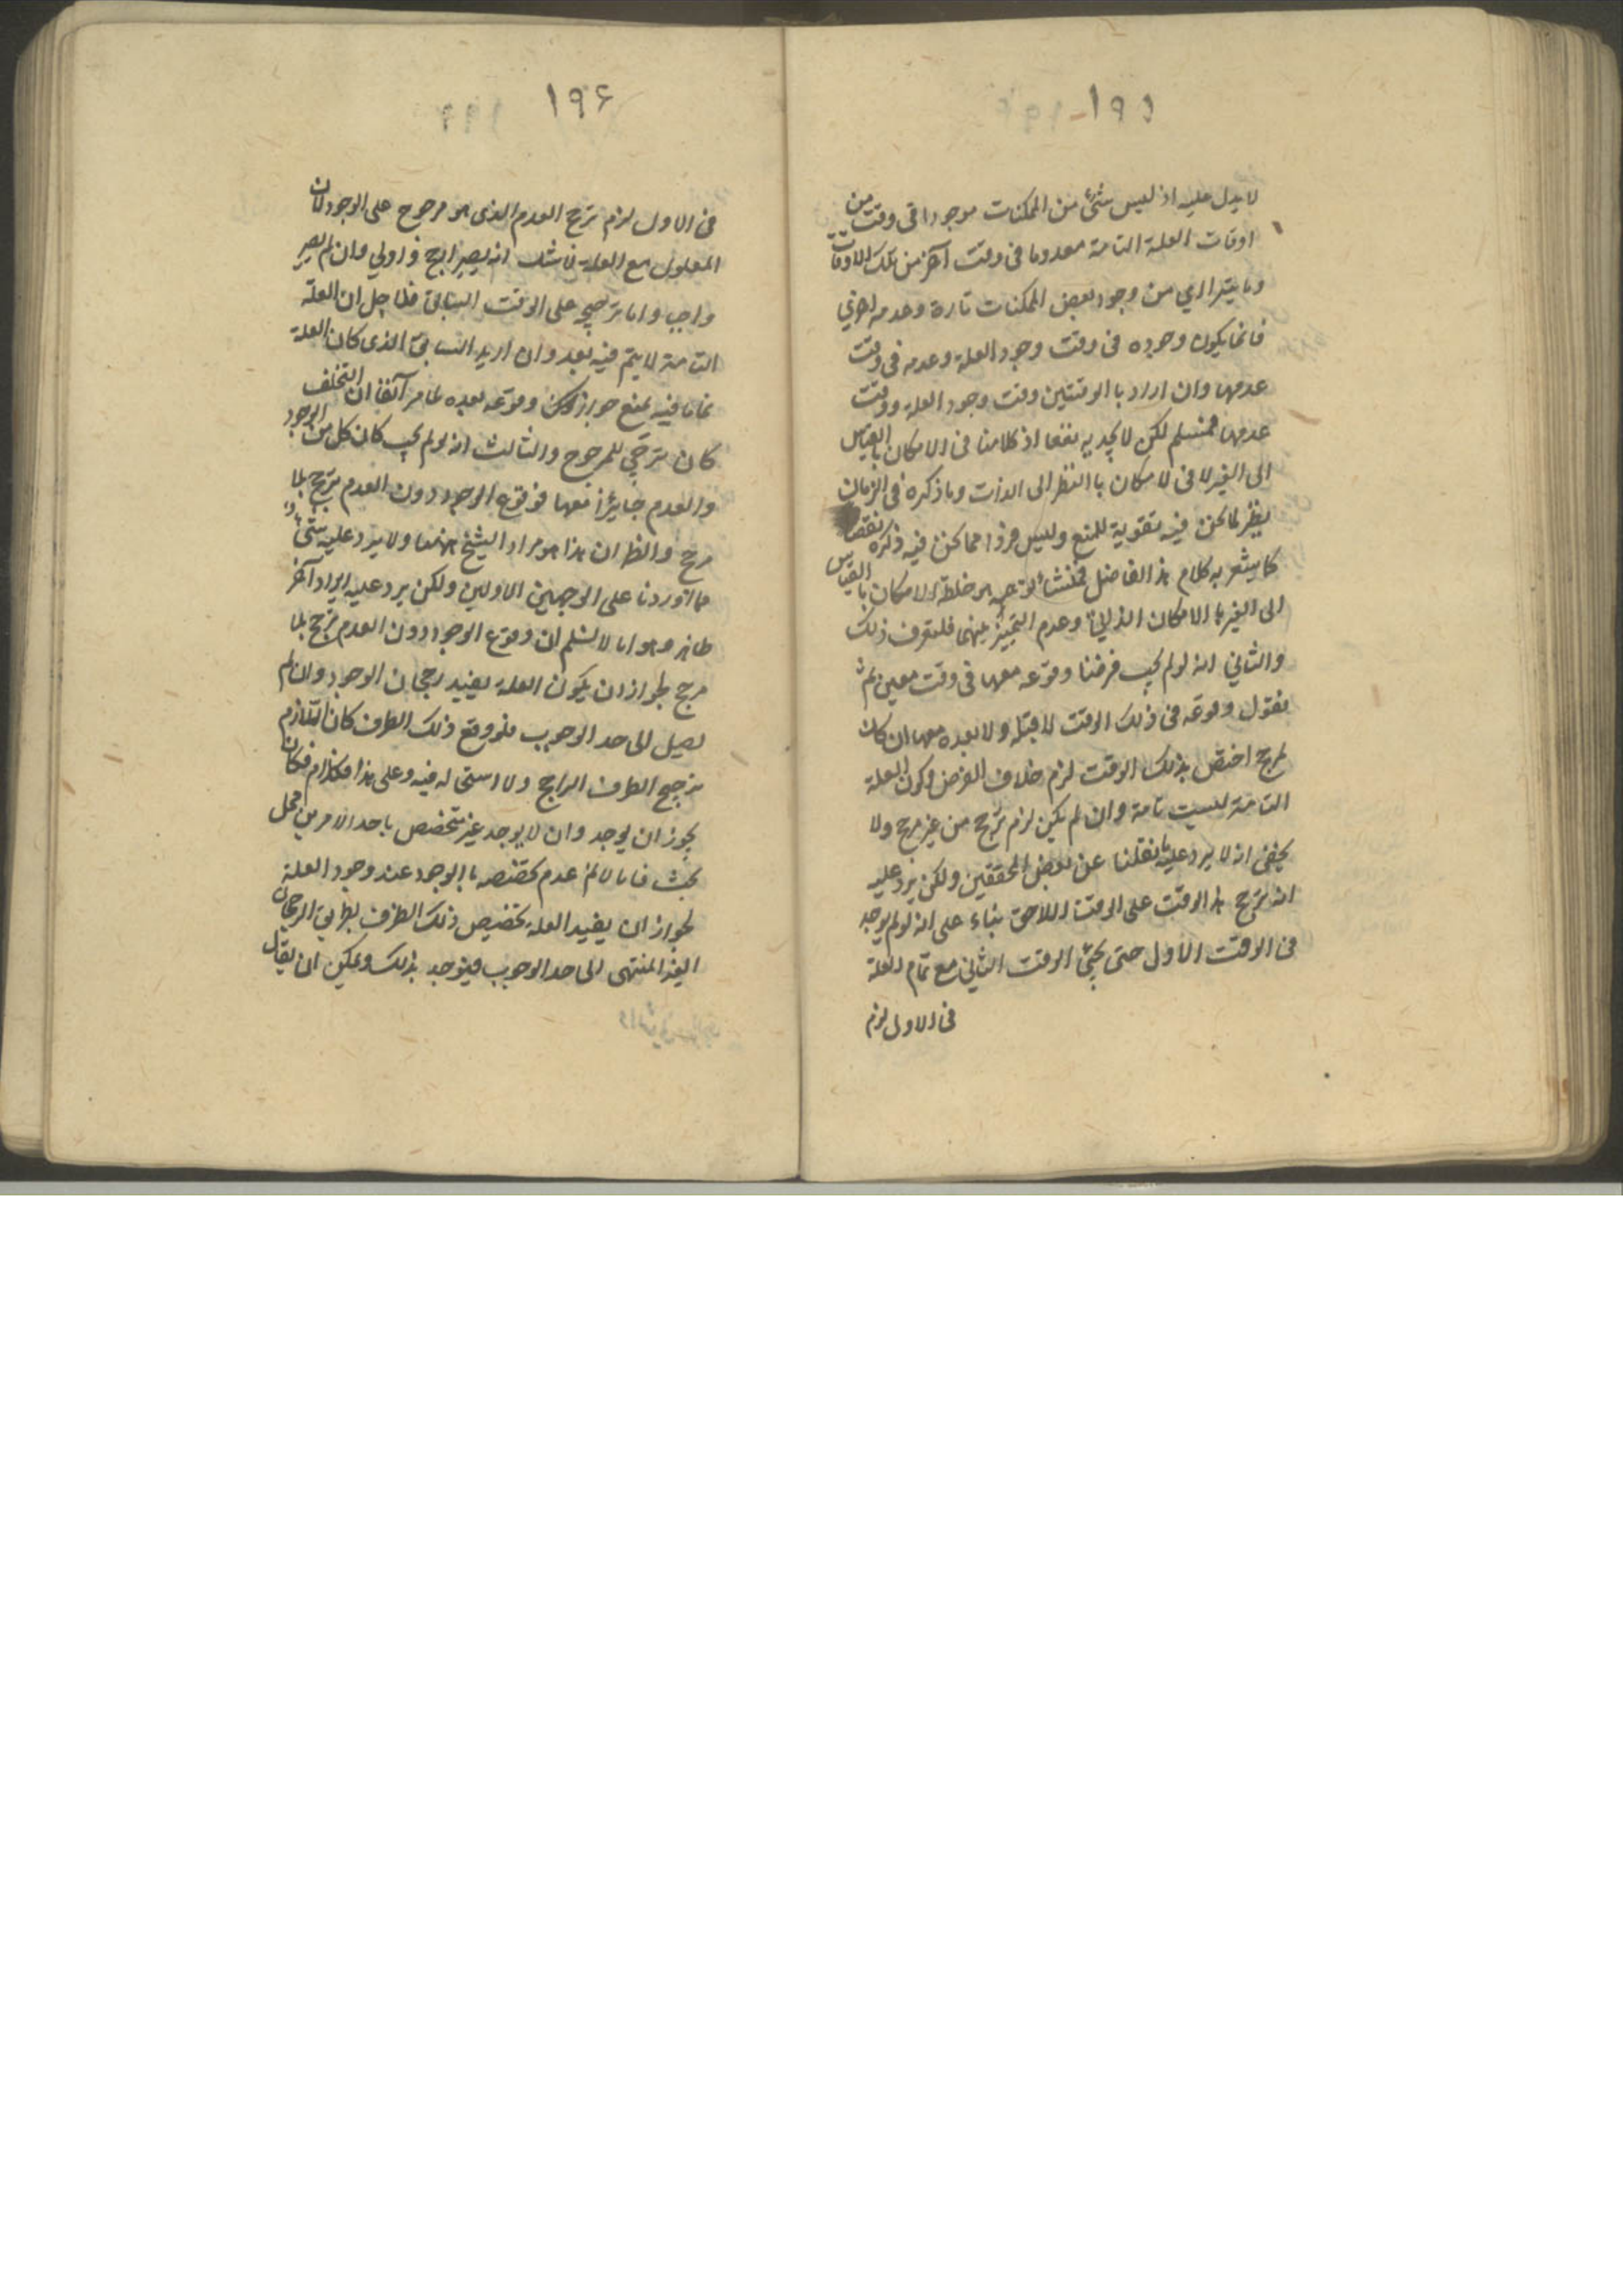 ١٩٥
لا يدل عليه اذ ليس شئ من الممكنات موجودا فى وقت من
اوقات العلة التامة معدوما فى وقت آخر من تلك الاوقات
وما يترااي من وجود بعض الممكنات تارة وعدمه اخري
فانما يكون وجوده فى وقت وجود العلة وعدمه فى وقت
عدمها وان اراد بالوقتين وقت وجود العلة ووقت
عدمها فمسلم لكن لا يجديه نفعا اذ كلامنا فى الامكان بالقياس
الى الغير لا فى لامكان باالنظر الى الذات وما ذكره فى الزمان
نظير لما نحن فيه تقوية للمنع وليس فردا مما نحن فيه ذكره نقضا
كما يشعر به كلام هذ الفاضل فمنشأ توهمه هو خلطه الامكان بالقياس
الى الغير باالامكان الذاتي وعدم التمييز بينهما فلتعرف ذلك
والثاني انه لو لم يجب فرضنا وقوعه معها فى وقت معين ثم
نقول وقوعه فى ذلك الوقت لا قبله ولا بعده معها ان كان
لمرجح اختص بذلك الوقت لزم خلاف الفرض وكون العلة
التامة ليست تامة وان لم يكن لزم ترجح من غير مرجح ولا
يخفى انه لا يرد عليه ما نقلنا عن بعض المحققين ولكن يرد عليه
انه ترجح هذ الوقت على الوقت اللاحق بناء على انه لو لم يوجد
فى الوقت الاول حتى يجئ الوقت الثاني مع تمام العلة
فى الاول لزم
١٩۶
فى الاول لزم ترجح العدم الذى هو مرجوح على الوجود لان
المعلول مع العلة لا شك انه يصير ارجح واولي وان لم يصر
واجبا واما ترجيحه على الوقت السابق فلاجل ان العلة
التامة لا يتم فيه بعد وان اريد السابق الذى كان العلة
تماما فيه يمنع جواز ذلك وقوعه بعده لما مر آنفا ان التخلف
كان ترجيح للمرجوح والثالث انه لو لم يجب كان كل من الوجود
والعدم جايزأ معها فوقوع الوجود دون العدم ترجح بلا
مرجح والظ ان هذا هو مراد الشيخ ههنا ولا يرد عليه شئ
مما اوردنا على الوجهين الاولين ولكن يرد عليه ايراد آخر
ظاهر وهو انا لا نسلم ان وقوع الوجود دون العدم ترجح بلا
مرجح لجواز ان يكون العلة يفيد رجحان الوجود وان لم
يصل الى حد الوجوب فلو وقع ذلك الطرف كان اللازم
ترجيح الطرف الراجح ولا استحاله فيه وعلى هذا فكان
يجوز ان يوجد وان لا يوجد غير متخصص باحد الامرين محل
بحث فانا لا نم عدم تخصصه باالوجود عند وجود العلة
لجواز ان يفيد العلة تخصيص ذلك الطرف بطريق الرجحان
الغير المنتهى الى حد الوجوب فيوجد بذلك ويمكن ان يقال